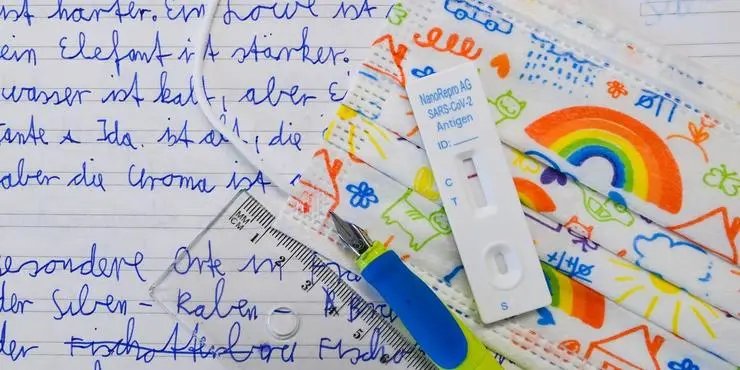 ist härter. Ein Löwe ist
ein Elefant ist stärker.
wasser ist kalt, aber E
Tante Ida ist alt, die
aber die Uroma ist
besondere Orte in
der Silben - Raben -
der Fischotter
NanoRepro AG
SARS-CoV-2
Antigen
ID:
C
T
S
MM
CM 1 2 3 4 5